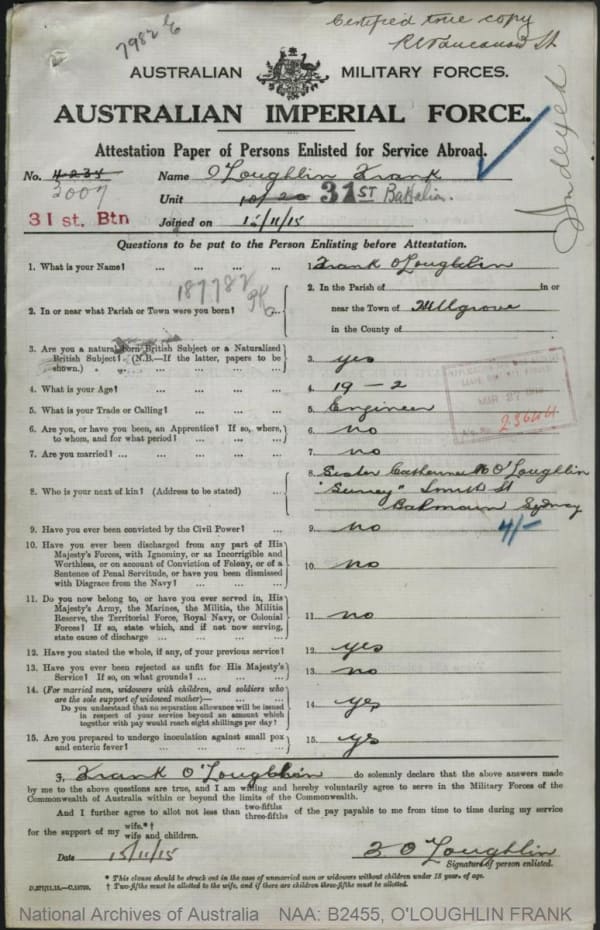 7982
Certified true copy
AUSTRALIAN MILITARY FORCES.
AUSTRALIAN IMPERIAL FORCE.
Attestation Paper of Persons Enlisted for Service Abroad.
Indexed
No. 4234 Name O'Loughlin Frank
3007 Unit 10/20 31ST Battalion.
31st. Btn Joined on 15/11/15
Questions to be put to the Person Enlisting before Attestation.
1. What is your Name? ... ... ... ... 1. Frank O'Loughlin
187782
2. In or near what Parish or Town were you born? 2. In the Parish of in or
near the Town of Hillgrove
in the County of
3. Are you a natural born British Subject or a Naturalized
British Subject? (N.B.—If the latter, papers to be
shown.) 3. yes
4. What is your Age? ... ... ... ... 4. 19 - 2
MAR 27
5. What is your Trade or Calling? ... ... ... 5. Engineer
23644
6. Are you, or have you been, an Apprentice? If so, where,
to whom, and for what period? ... ... ... 6. no
7. Are you married? ... ... ... ... 7. no
8. Who is your next of kin? (Address to be stated) ... 8. Sister Catherine M O'Loughlin
"Surrey" Smith St
Balmain Sydney
9. Have you ever been convicted by the Civil Power? ... 9. no 4/-
10. Have you ever been discharged from any part of His
Majesty's Forces, with Ignominy, or as Incorrigible and
Worthless, or on account of Conviction of Felony, or of a
Sentence of Penal Servitude, or have you been dismissed
with Disgrace from the Navy? ... ... ... 10. no
11. Do you now belong to, or have you ever served in, His
Majesty's Army, the Marines, the Militia, the Militia
Reserve, the Territorial Force, Royal Navy, or Colonial
Forces? If so, state which, and if not now serving,
state cause of discharge ... ... ... 11. no
12. Have you stated the whole, if any, of your previous service? 12. yes
13. Have you ever been rejected as unfit for His Majesty's
Service? If so, on what grounds? ... ... ... 13. no
14. (For married men, widowers with children, and soldiers who
are the sole support of widowed mother)—
Do you understand that no separation allowance will be issued
in respect of your service beyond an amount which
together with pay would reach eight shillings per day? 14. yes
15. Are you prepared to undergo inoculation against small pox
and enteric fever? ... ... ... ... 15. yes
I, Frank O'Loughlin do solemnly declare that the above answers made
by me to the above questions are true, and I am willing and hereby voluntarily agree to serve in the Military Forces of the
Commonwealth of Australia within or beyond the limits of the Commonwealth.
And I further agree to allot not less than two-fifths three-fifths of the pay payable to me from time to time during my service
for the support of my wife.*† wife and children.
Date 15/11/15 F O'Loughlin
Signature of person enlisted.
* This clause should be struck out in the case of unmarried men or widowers without children under 18 years of age.
† Two-fifths must be allotted to the wife, and if there are children three-fifths must be allotted.
National Archives of Australia NAA: B2455, O'LOUGHLIN FRANK